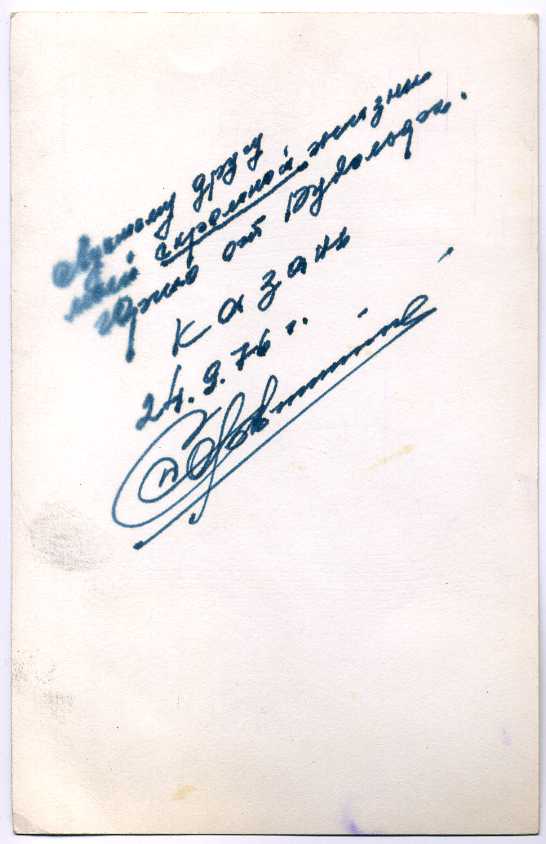 Лучшему другу
моей скромной жизни
Юрию от Рудольфа.
Казань
24.9.76 г.